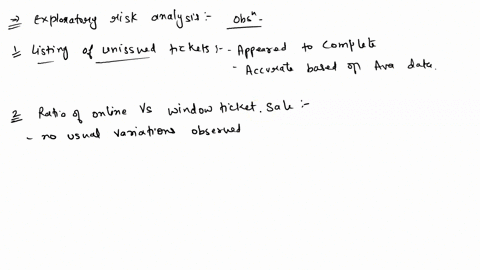 => Exploratory risk analysis:- Obsⁿ.
1 Listing of unissued tickets:- - Appeared to Complete
- Accurate based on Ava data.
2 Ratio of online Vs window ticket. Sale:-
- no usual variations observed